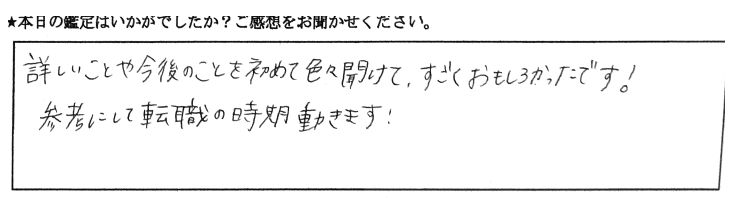 ★本日の鑑定はいかがでしたか？ご感想をお聞かせください。
詳しいことや今後のことを初めて色々聞けて、すごくおもしろかったです！
参考にして転職の時期動きます！